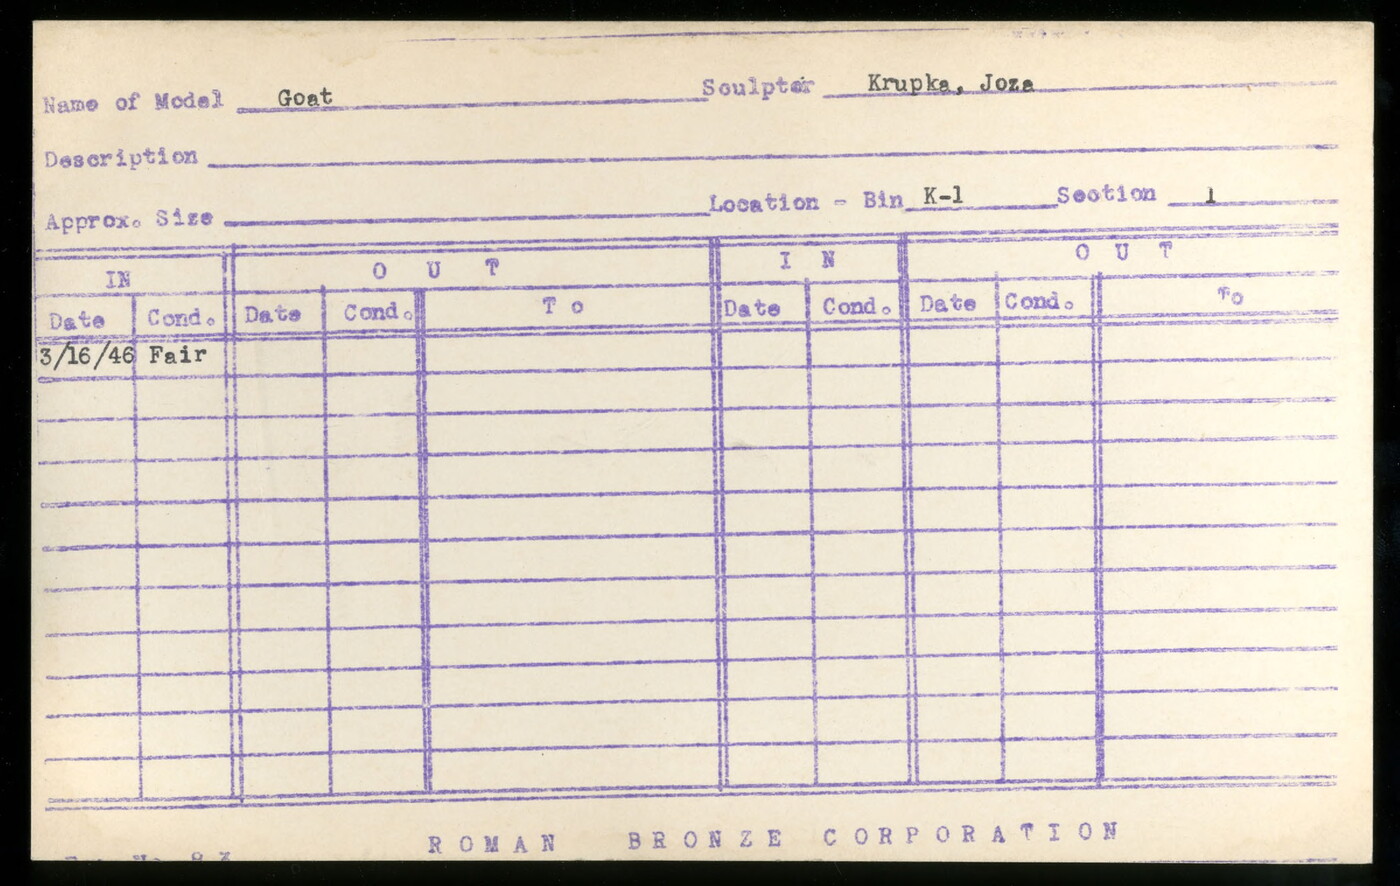 Name of Model Goat Sculptor Krupka, Joza
Description
Approx. Size Location - Bin K-1 Section 1
IN O U T I N O U T
Date Cond. Date Cond. To Date Cond. Date Cond. To
3/16/46 Fair
ROMAN BRONZE CORPORATION